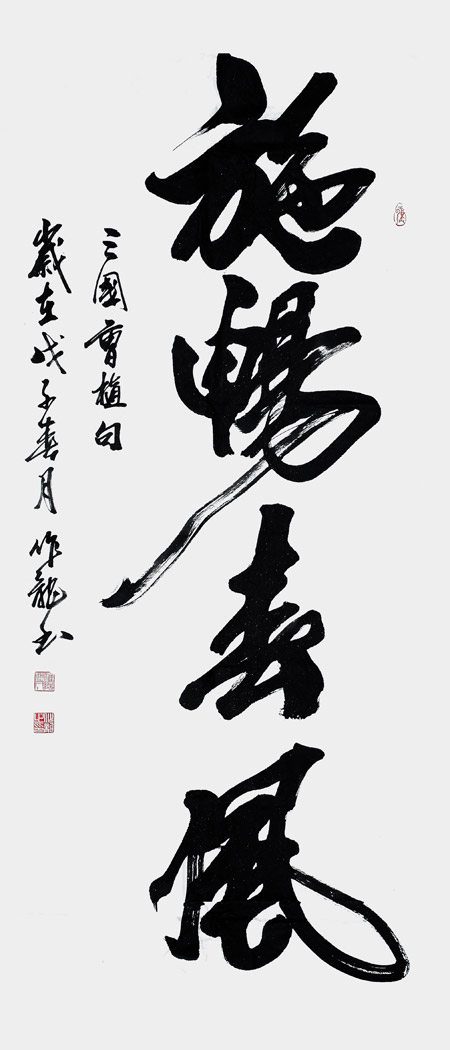 施暢春風
三國曹植句
歲在戊子春月 作龍書